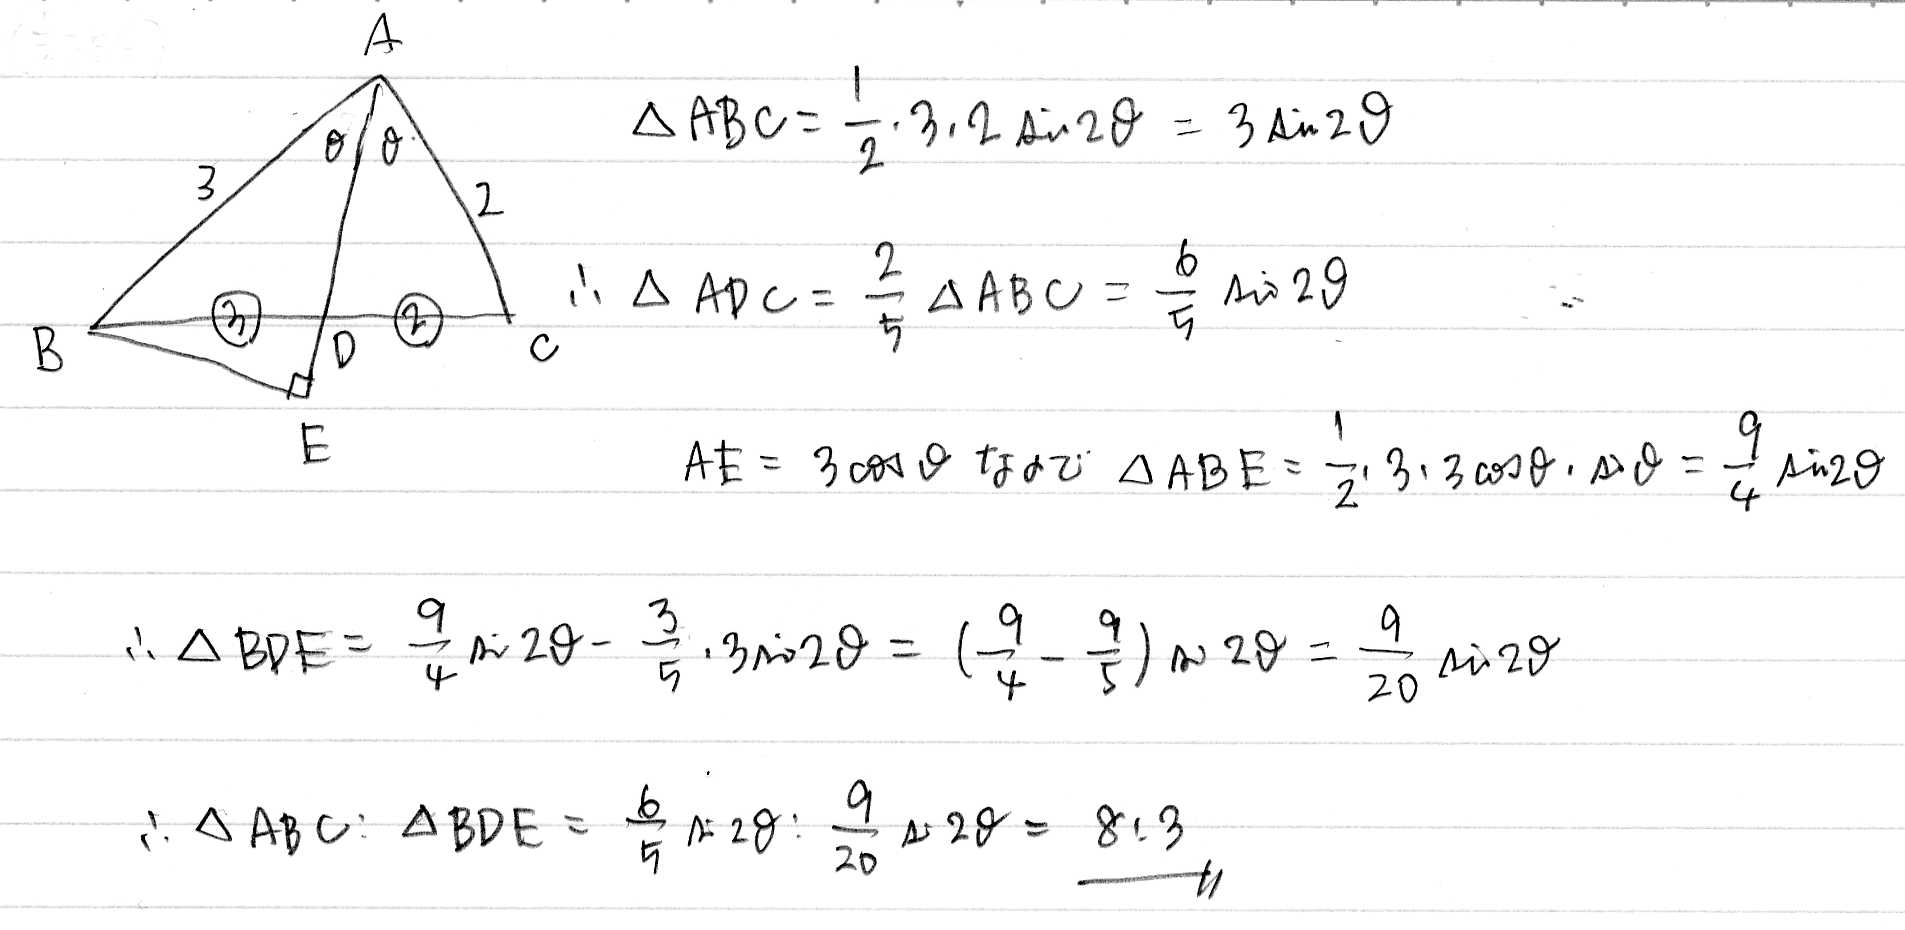 A
θ θ
3
2
③ ②
B D C
E
△ABC = 1/2・3・2 sin2θ = 3 sin2θ
∴ △ADC = 2/5 △ABC = 6/5 sin2θ
AE = 3cosθ なので △ABE = 1/2・3・3cosθ・sinθ = 9/4 sin2θ
∴ △BDE = 9/4 sin2θ - 3/5・3sin2θ = (9/4 - 9/5) sin2θ = 9/20 sin2θ
∴ △ABC : △BDE = 6/5 sin2θ : 9/20 sin2θ = 8:3